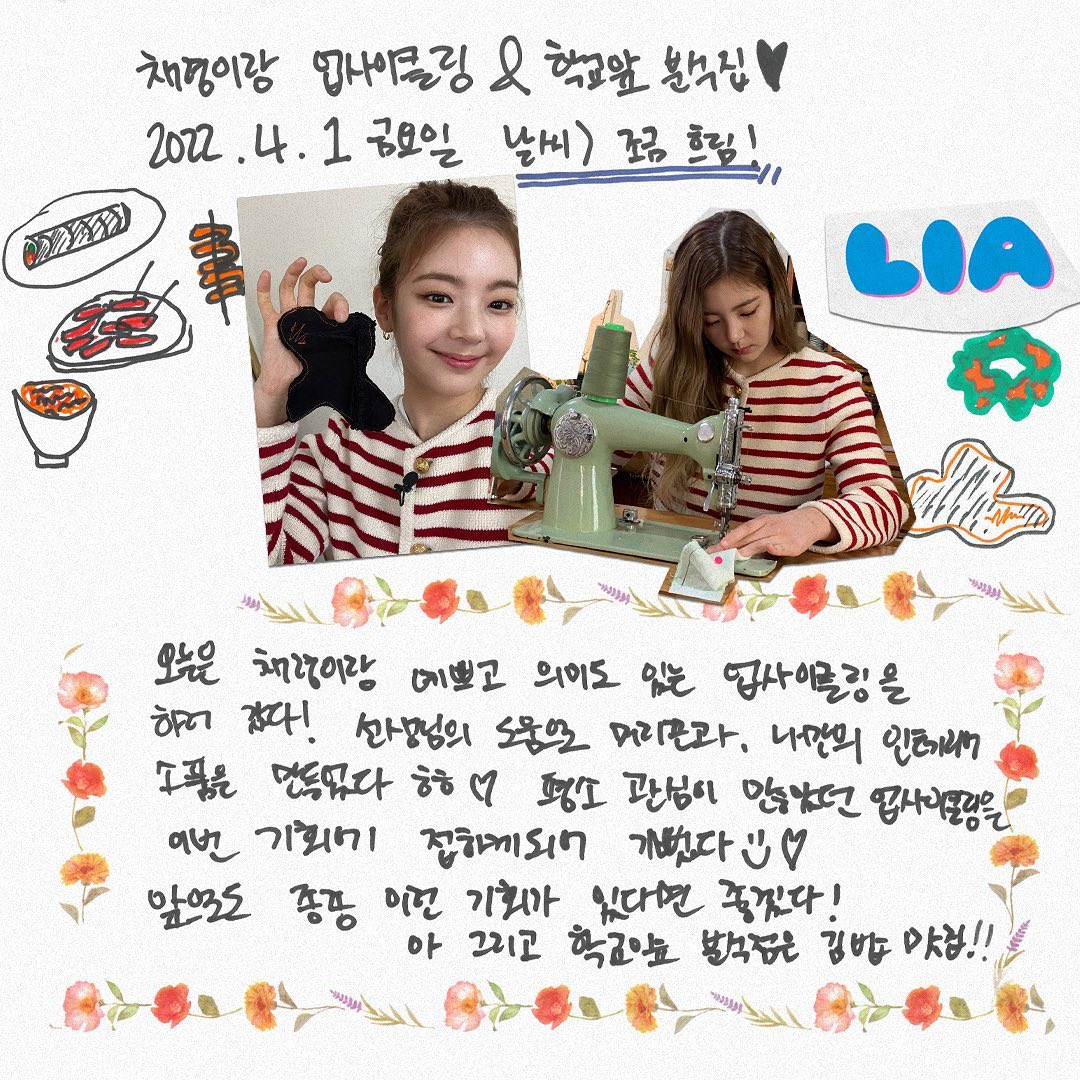 채령이랑 업사이클링 & 학교앞 분식집♥
2022.4.1 금요일 날씨) 조금 흐림!
LIA
오늘은 채령이랑 예쁘고 의미도 있는 업사이클링을
하러 갔다! 선생님의 도움으로 머리끈과, 나만의 인테리어
소품을 만들었다 ㅎㅎ ♡ 평소 관심이 많았던 업사이클링을
이번 기회에 접하게되어 기뻤다 :) ♡
앞으로도 종종 이런 기회가 있다면 좋겠다!
아 그리고 학교앞 분식점은 김밥 맛집!!